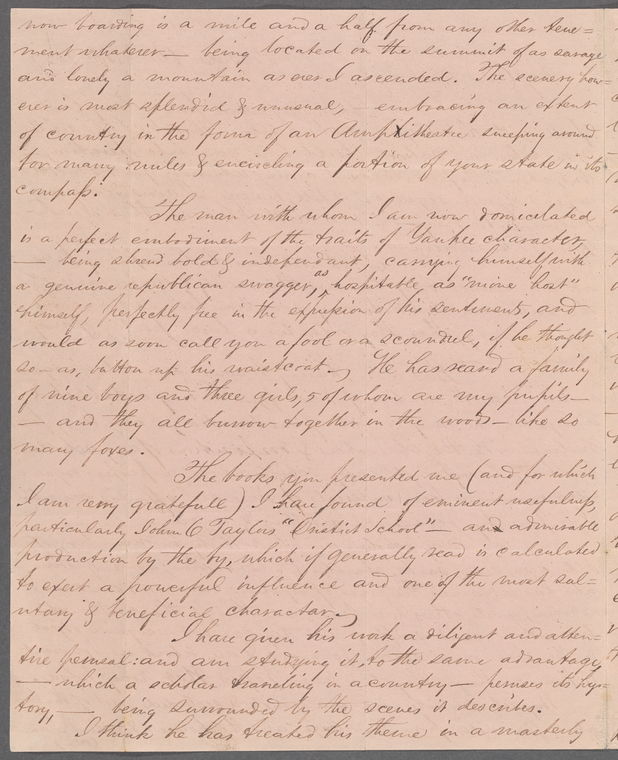 now boarding is a mile and a half from any other tene=
ment whatever — being located on the summit of as savage
and lonely a mountain as ever I ascended. The scenery how=
ever is most splendid & unusual, — embracing an extent
of country in the form of an Amphitheatre sweeping around
for many miles & encircling a portion of your state in its
compass.
The man with whom I am now domicilated
is a perfect embodiment of the traits of Yankee character,
— being shrewd bold & independant, carrying himself with
a genuine republican swagger, as hospitable as "mine host"
himself, perfectly free in the expression of his sentiments, and
would as soon call you a fool or a scoundrel, if he thought
so — as, button up his waistcoat. — He has reard a family
of nine boys and three girls, 5 of whom are my pupils —
— and they all burrow together in the woods — like so
many foxes.
The books you presented me (and for which
I am very gratefull) I have found of eminent usefulness,
particularly John O Taylors "District School" — an admirable
production by the by, which if generally read is calculated
to exert a powerful influence and one of the most sal=
utary & beneficial charactar. —
I have given his work a diligent and atten=
tive perusal: and am studying it, to the same advantage,
— which a scholar traveling in a country — peruses its hys=
tory, — being surrounded by the scenes it describes.
I think he has treated his theme in a masterly